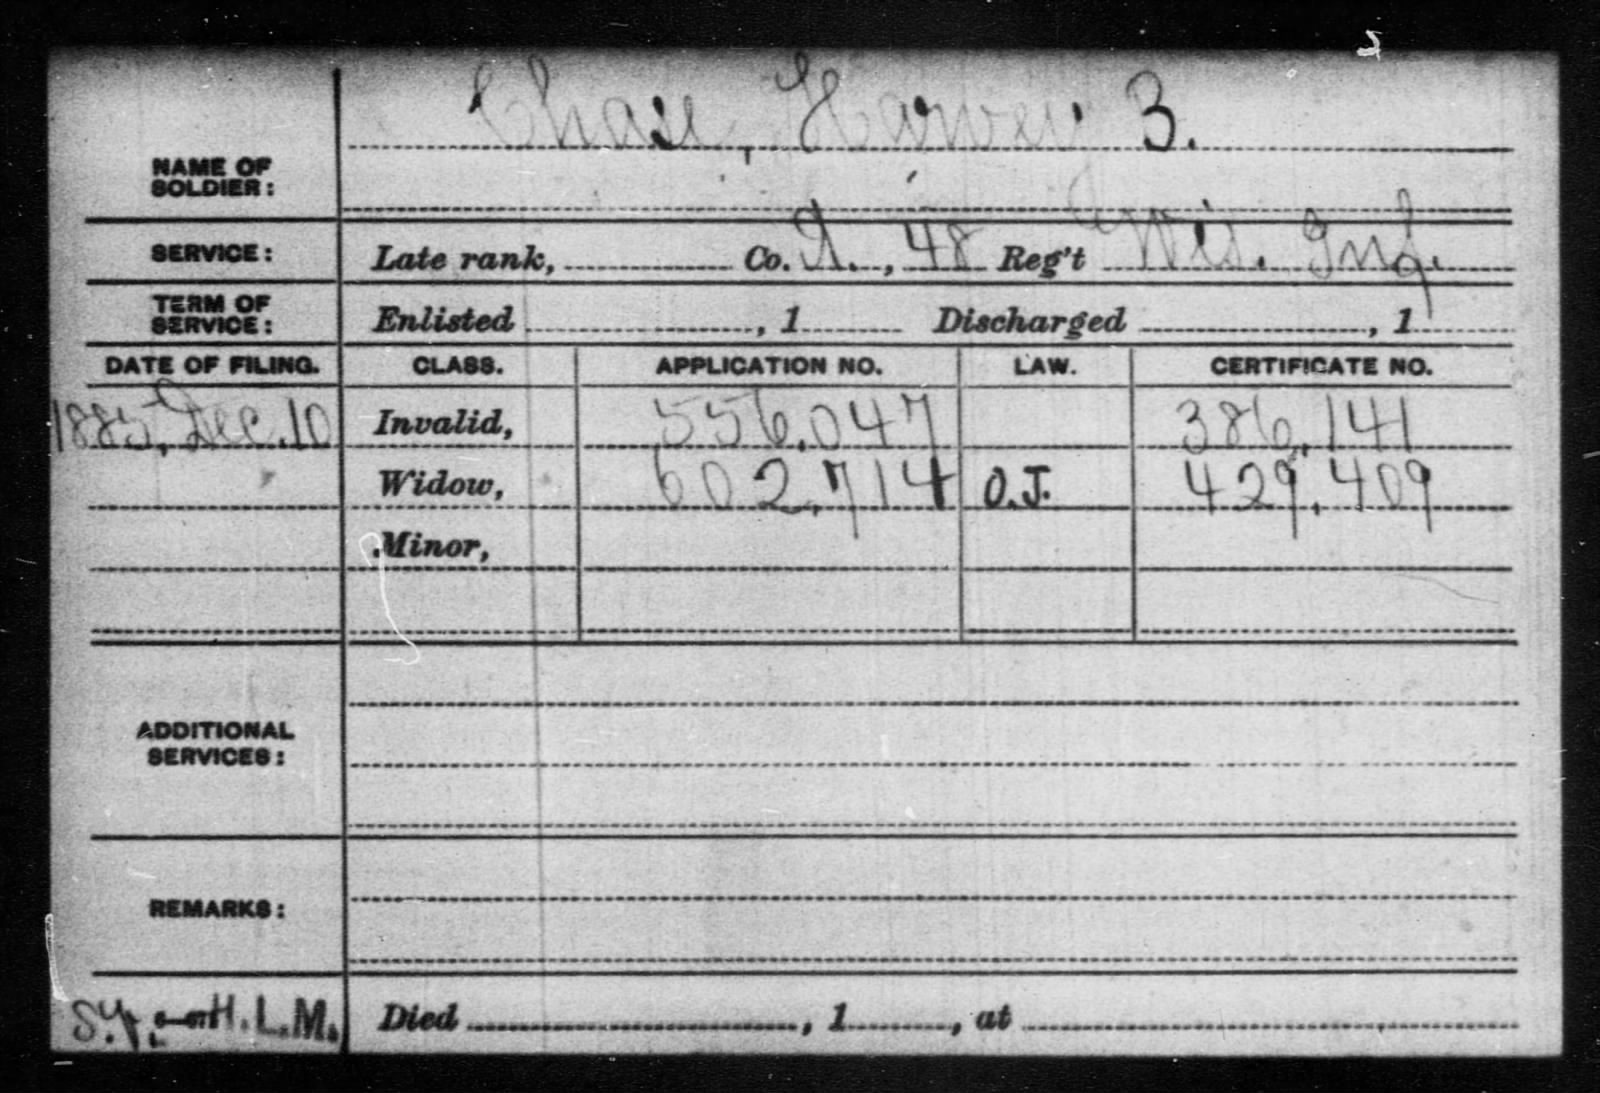 Chase, Harvey B.
NAME OF
SOLDIER:
SERVICE: Late rank, Co. A., 48 Reg't Wis. Inf.
TERM OF
SERVICE: Enlisted , 1 Discharged , 1
DATE OF FILING. CLASS. APPLICATION NO. LAW. CERTIFICATE NO.
1885, Dec. 10 Invalid, 556,047 386,141
Widow, 602,714 O.J. 429,409
Minor,
ADDITIONAL
SERVICES:
REMARKS:
H.L.M. Died , 1 , at